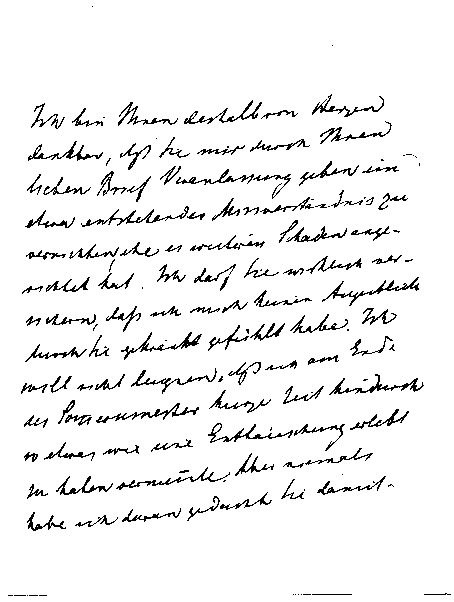 Ich bin Ihnen deshalb von Herzen
dankbar, daß Sie mir durch Ihren
lieben Brief Veranlassung geben ein
etwa entstehendes Missverständnis zu
vernichten, ehe es weiteren Schaden ange-
richtet hat. Ich darf Sie wirklich ver-
sichern, daß ich mich keinen Augenblick
durch Sie gekränkt gefühlt habe. Ich
will nicht leugnen, daß ich am Ende
des Sommersemester kurze Zeit hindurch
so etwas wie eine Enttäuschung erlebt
zu haben vermeinte. Aber niemals
habe ich daran gedacht Sie damit-